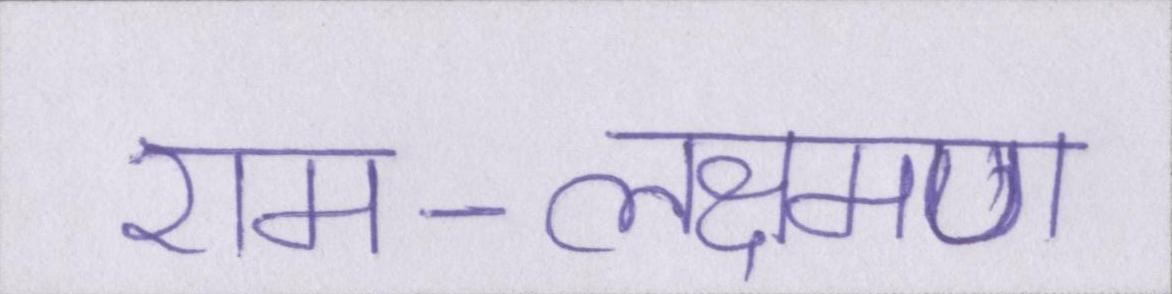 राम-लक्षमण